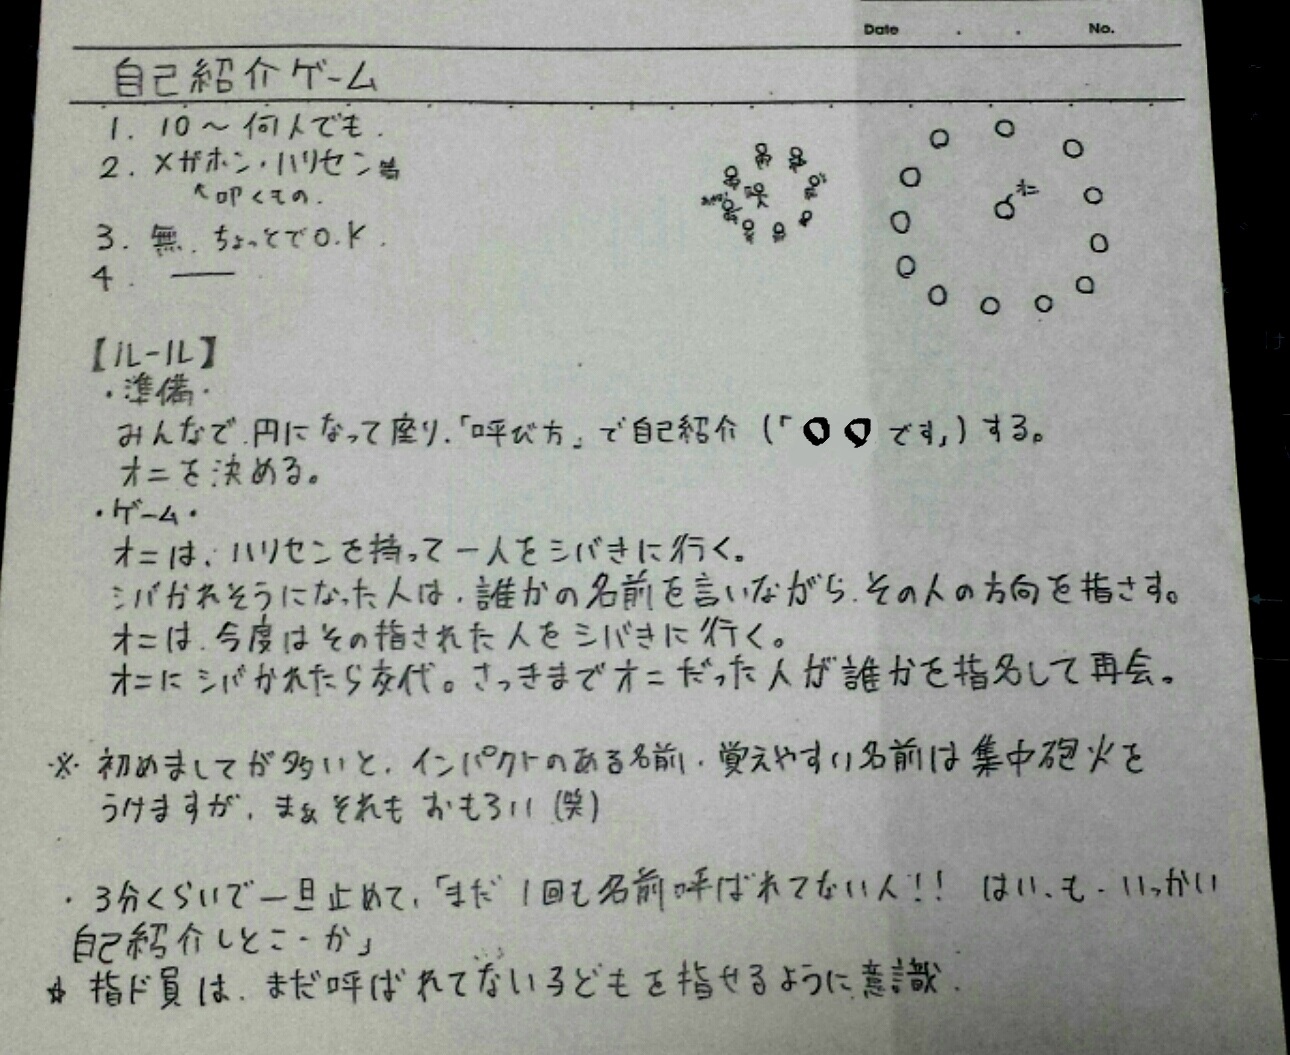 Date . . No.
自己紹介ゲーム
1. 10～何人でも.
2. メガホン・ハリセン等
↖叩くもの.
3. 無. ちょっとでO.K.
4. ――
オニ
【ルール】
・準備・
みんなで.円になって座り.「呼び方」で自己紹介(「〇〇です」)する。
オニを決める。
・ゲーム・
オニは、ハリセンを持って一人をシバきに行く。
シバかれそうになった人は、誰かの名前を言いながら、その人の方向を指さす。
オニは、今度はその指された人をシバきに行く。
オニにシバかれたら交代。さっきまでオニだった人が誰かを指名して再会。
※ 初めましてが多いと、インパクトのある名前、覚えやすい名前は集中砲火を
うけますが、まぁそれもおもろい(笑)
・3分くらいで一旦止めて、「まだ1回も名前呼ばれてない人!! はい、も-いっかい
自己紹介しとこ-か」
☆ 指ド員は、まだ呼ばれてない子どもを指せるように意識.